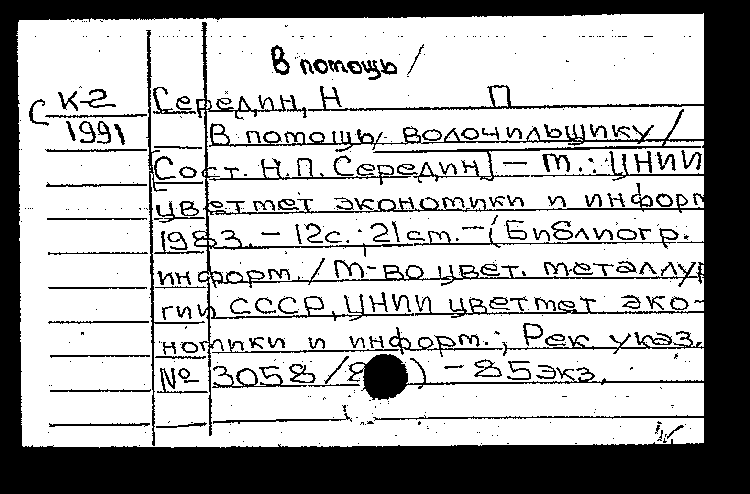 В помощь /
С К-2 Середин, Н П
1991 В помощь волочильщику /
[Сост. Н.П. Середин] — М.: ЦНИИ
цветмет экономики и информ
1983. — 12с.; 21см. — (Библиогр.
информ. / М-во цвет. металлур
гии СССР, ЦНИИ цветмет эко-
номики и информ.; Рек. указ.
№ 3058/8 ) — 85экз.